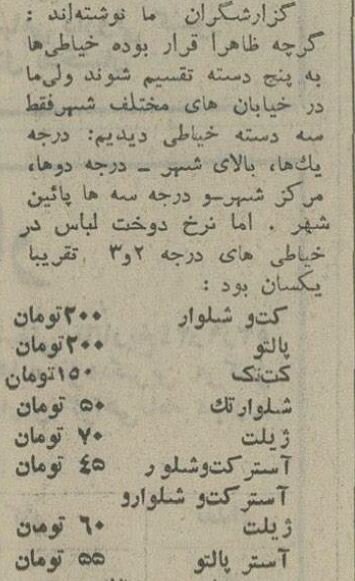 گزارشگران ما نوشته‌اند :
گرچه ظاهرا قرار بوده خیاطی‌ها
به پنج دسته تقسیم شوند ولی‌ما
در خیابان های مختلف شهرفقط
سه دسته خیاطی دیدیم: درجه
یك‌ها، بالای شهر ـ درجه دوها،
مرکز شهر‌ـ‌و درجه سه ها پائین
شهر . اما نرخ دوخت لباس در
خیاطی های درجه ۲و۳ تقریبا
یکسان بود :
کت‌و شلوار ۲۰۰تومان
پالتو ۲۰۰تومان
کت‌تک ۱۵۰تومان
شلوارتك ۵۰ تومان
ژیلت ۷۰ تومان
آستر کت‌وشلو ر ۴۵ تومان
آستر کت‌و شلوارو
ژیلت ۶۰ تومان
آستر پالتو ۵۵ تومان